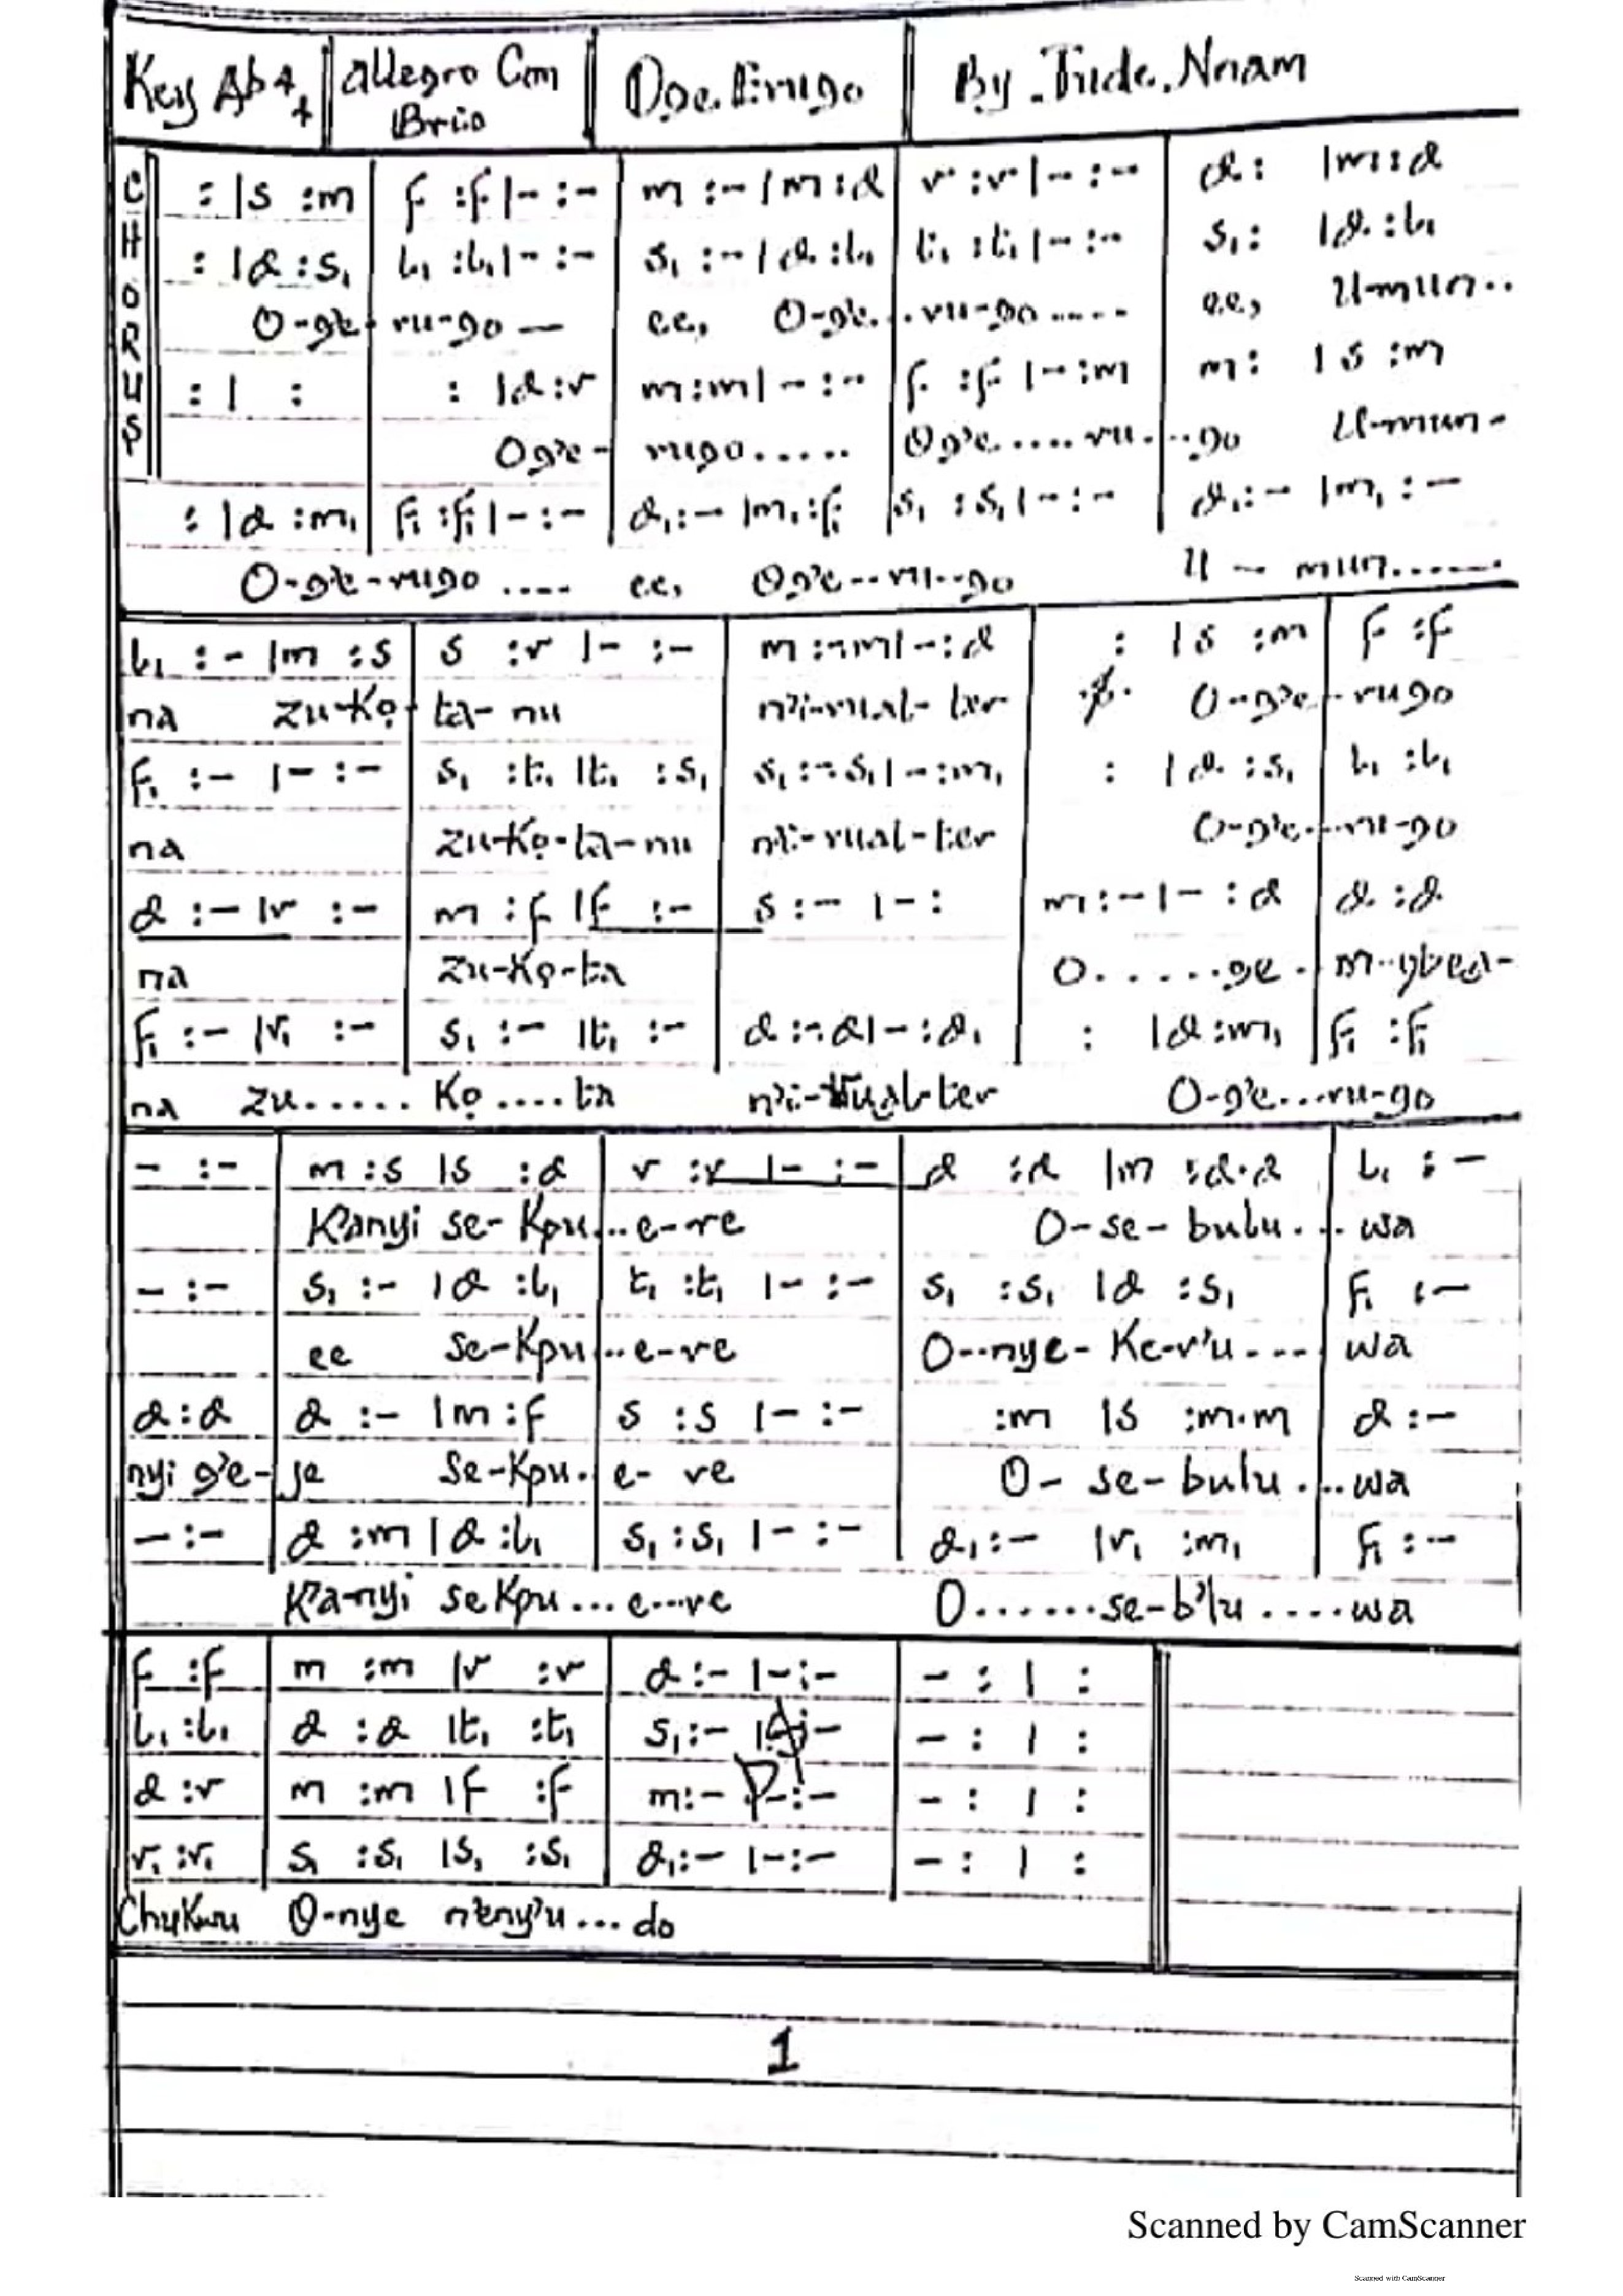 Key Ab 4/4 allegro Con Brio Oge Erugo By Jude Nnam
CHORUS
: |s :m | f :f |- :- | m :- |m :d | r :r |- :- | d : |m :d
: |d :s₁ | l₁ :l₁ |- :- | s₁ :- |d :l₁ | t₁ :t₁ |- :- | s₁ : |d :l₁
O-ge-ru-go — ee, O-ge...ru-go..... ee, U-mun..
: | : | : |d :r | m :m |- :- | f :f |- :m | m : |s :m
Og'e- rugo..... Og'e.....ru...go U-mun-
: |d :m₁ | f₁ :f₁ |- :- | d₁ :- |m₁ :f₁ | s₁ :s₁ |- :- | d₁ :- |m₁ :-
O-ge-rugo .... ee, Og'e--ru--go U - mun......
l₁ :- |m :s | s :r |- :- | m :-.m |- :d | : |s :m | f :f
na zu-kọ-ta-nu n'i-rual-ter O-g'e-rugo
f₁ :- |- :- | s₁ :t₁ |t₁ :s₁ | s₁ :-.s₁ |- :m₁ | : |d :s₁ | l₁ :l₁
na zu-kọ-ta-nu n'i-rual-ter O-g'e-ru-go
d :- |r :- | m :f |f :- | s :- |- : | m :- |- :d | d :d
na zu-kọ-ta O......ge.
f₁ :- |r₁ :- | s₁ :- |t₁ :- | d :-.d |- :d₁ | : |d :m₁ | f₁ :f₁
na zu...... kọ....ta n'i-rual-ter O-g'e...ru-go
- :- | m :s |s :d | r :r |- :- | d :d |m :d.d | l₁ :-
Kanyi se-kpu...e-re O-se-bulu... wa
- :- | s₁ :- |d :l₁ | t₁ :t₁ |- :- | s₁ :s₁ |d :s₁ | f₁ :-
ee se-kpu...e-re O--nye-Ke-r'u---- wa
d :d | d :- |m :f | s :s |- :- | :m |s :m.m | d :-
nyi g'e-je se-kpu. e- re O- se-bulu....wa
- :- | d :m |d :l₁ | s₁ :s₁ |- :- | d₁ :- |r₁ :m₁ | f₁ :-
Ka-nyi sekpu...e...re O.......se-b'lu....wa
f :f | m :m |r :r | d :- |- :- | - : | :
l₁ :l₁ | d :d |t₁ :t₁ | s₁ :- |- :- | - : | :
d :r | m :m |f :f | m :- |- :- | - : | :
r₁ :r₁ | s₁ :s₁ |s₁ :s₁ | d₁ :- |- :- | - : | :
Chukwu O-nye n'eny'u...do
1
Scanned by CamScanner
Scanned with CamScanner